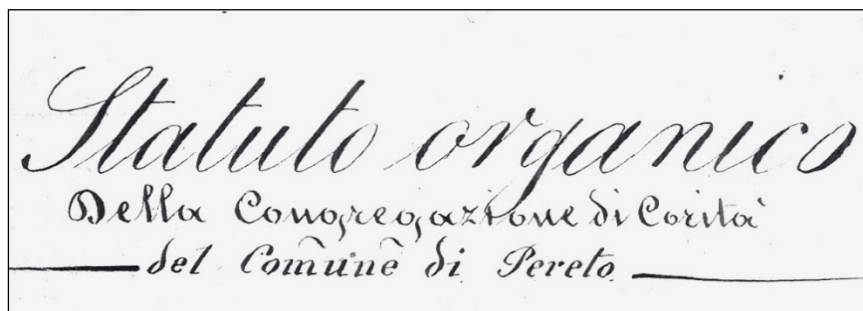 Statuto organico
Della Congregazione di Corità
del Comune di Pereto